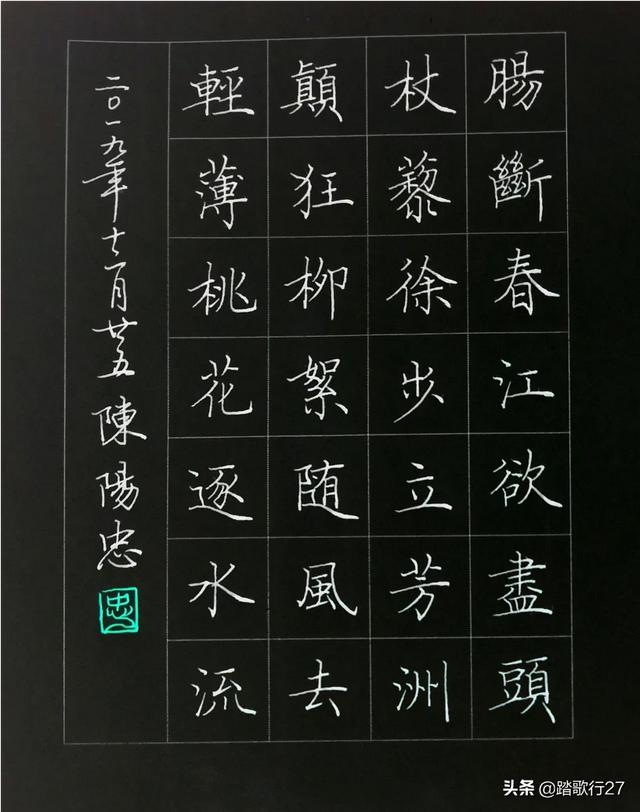 腸斷春江欲盡頭
杖藜徐步立芳洲
顛狂柳絮随風去
輕薄桃花逐水流
二〇一九年十二月廿五陳陽忠
忠
头条 @踏歌行27